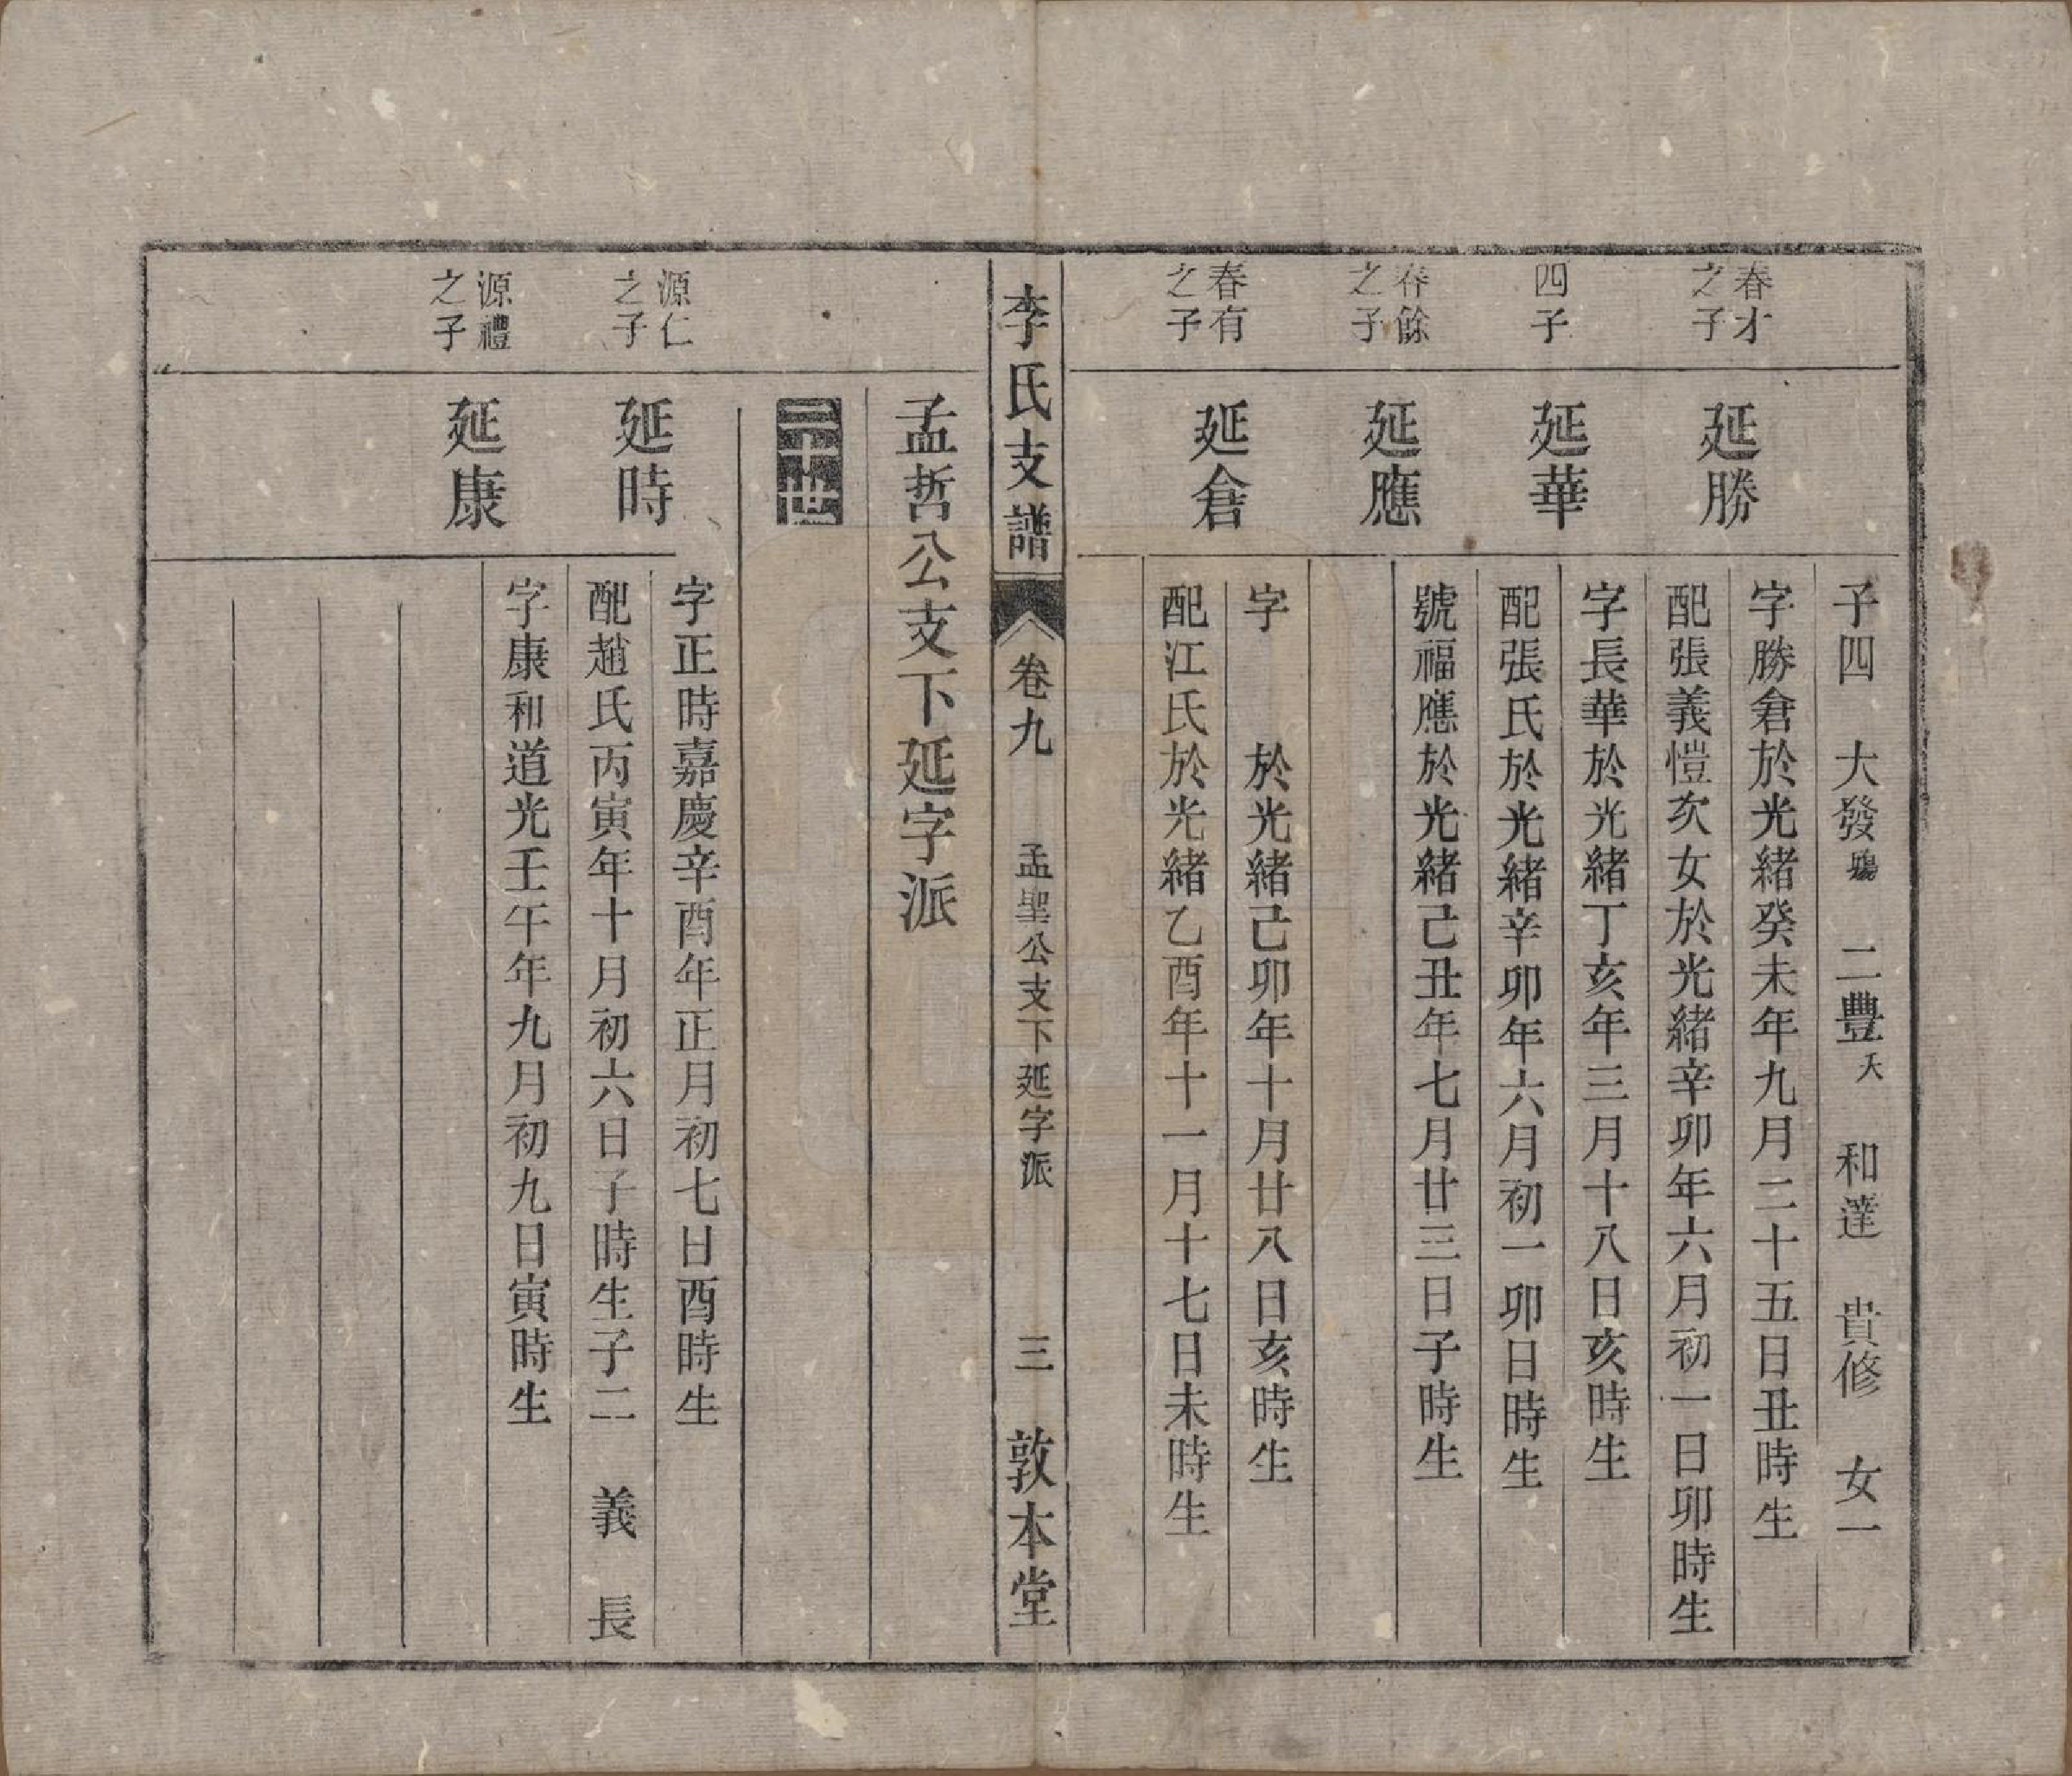 子四　大發　二豐夭　和達　貴修　女一
春才之子
延勝
字勝倉於光緒癸未年九月二十五日丑時生
配張義愷次女於光緒辛卯年六月初一日卯時生
四子
延華
字長華於光緒丁亥年三月十八日亥時生
配張氏於光緒辛卯年六月初一卯日時生
春餘之子
延應
號福應於光緒己丑年七月廿三日子時生
春有之子
延倉
字　　於光緒己卯年十月廿八日亥時生
配江氏於光緒乙酉年十一月十七日未時生
李氏支譜　卷九　孟聖公支下延字派　三　敦本堂
孟哲公支下延字派
二十世
源仁之子
延時
字正時嘉慶辛酉年正月初七日酉時生
配趙氏丙寅年十月初六日子時生子二　義　長
源禮之子
延康
字康和道光壬午年九月初九日寅時生